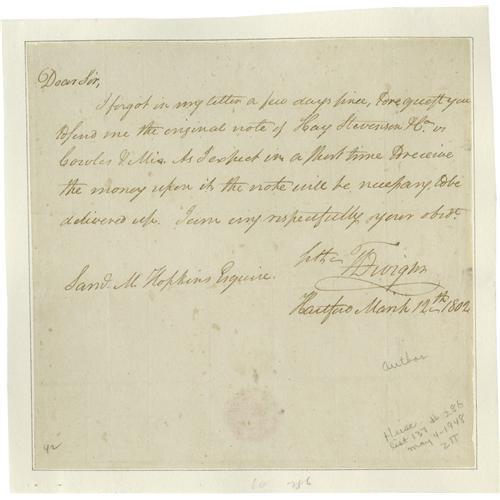 Dear Sir,
I forgot in my letter a few days since, to request you
to send me the original note of Hay Stevenson & Co. vs
Cowles & Mix. As I expect in a short time to receive
the money upon it, the note will be necessary to be
delivered up. I am very respectfully your obdt.
T Dwight
Saml. M. Hopkins Esquire.
Hartford March 12th 1802
author
# 286
List 137
may 4-1948
42
286